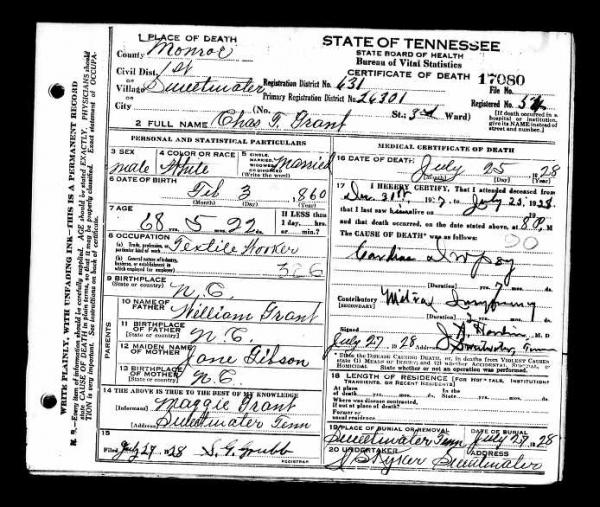 1 PLACE OF DEATH
County Monroe
Civil Dist. 1st
or
Village Sweetwater
or
City
STATE OF TENNESSEE
STATE BOARD OF HEALTH
Bureau of Vital Statistics
CERTIFICATE OF DEATH
17080
File No.
Registration District No. 631
Primary Registration District No. 26301
Registered No.
(No. St.; 3rd Ward)
[If death occurred in a hospital or institution, give its NAME instead of street and number.]
2 FULL NAME Chas T. Grant
PERSONAL AND STATISTICAL PARTICULARS
3 SEX
male
4 COLOR OR RACE
White
5 SINGLE, MARRIED, WIDOWED OR DIVORCED
(Write the word)
Married
6 DATE OF BIRTH
Feb 3, 1860
(Month) (Day) (Year)
7 AGE
68 5 22
If LESS than
1 day, hrs.
or min.
8 OCCUPATION
(a) Trade, profession, or
particular kind of work
Textile Worker
(b) General nature of industry,
business, or establishment in
which employed (or employer)
326
9 BIRTHPLACE
(State or country)
N.C.
PARENTS
10 NAME OF
FATHER
William Grant
11 BIRTHPLACE
OF FATHER
(State or country)
N.C.
12 MAIDEN NAME
OF MOTHER
Jane Gibson
13 BIRTHPLACE
OF MOTHER
(State or country)
N.C.
14 THE ABOVE IS TRUE TO THE BEST OF MY KNOWLEDGE
(Informant) Maggie Grant
(Address) Sweetwater Tenn
15
Filed July 27 1928 S. G. Grubb
REGISTRAR
MEDICAL CERTIFICATE OF DEATH
16 DATE OF DEATH
July 25 1928
(Month) (Day) (Year)
17 I HEREBY CERTIFY, That I attended deceased from
Dec. 1927, to July 25, 1928
that I last saw him alive on
and that death occurred, on the date stated above, at 8 P. M
The CAUSE OF DEATH* was as follows:
90
Cardiac dropsy
Contributory
(Secondary)
Mitral
Signed M. D
July 27 1928 Sweetwater, Tenn
*State the DISEASE CAUSING DEATH, or, in deaths from VIOLENT CAUSES, state (1) MEANS OF INJURY; and (2) whether ACCIDENTAL, SUICIDAL, or HOMICIDAL.
18 LENGTH OF RESIDENCE (FOR HOSPITALS, INSTITUTIONS, TRANSIENTS, OR RECENT RESIDENTS)
At place
of death
In the
State
Where was disease contracted,
if not at place of death?
Former or
usual residence
19 PLACE OF BURIAL OR REMOVAL DATE OF BURIAL
Sweetwater Tenn July 27 1928
20 UNDERTAKER
Sweetwater
WRITE PLAINLY, WITH UNFADING INK—THIS IS A PERMANENT RECORD
N. B.—Every item of information should be carefully supplied. AGE should be stated EXACTLY. PHYSICIANS should state CAUSE OF DEATH in plain terms, so that it may be properly classified. Exact statement of OCCUPATION is very important. See instructions on back of certificate.